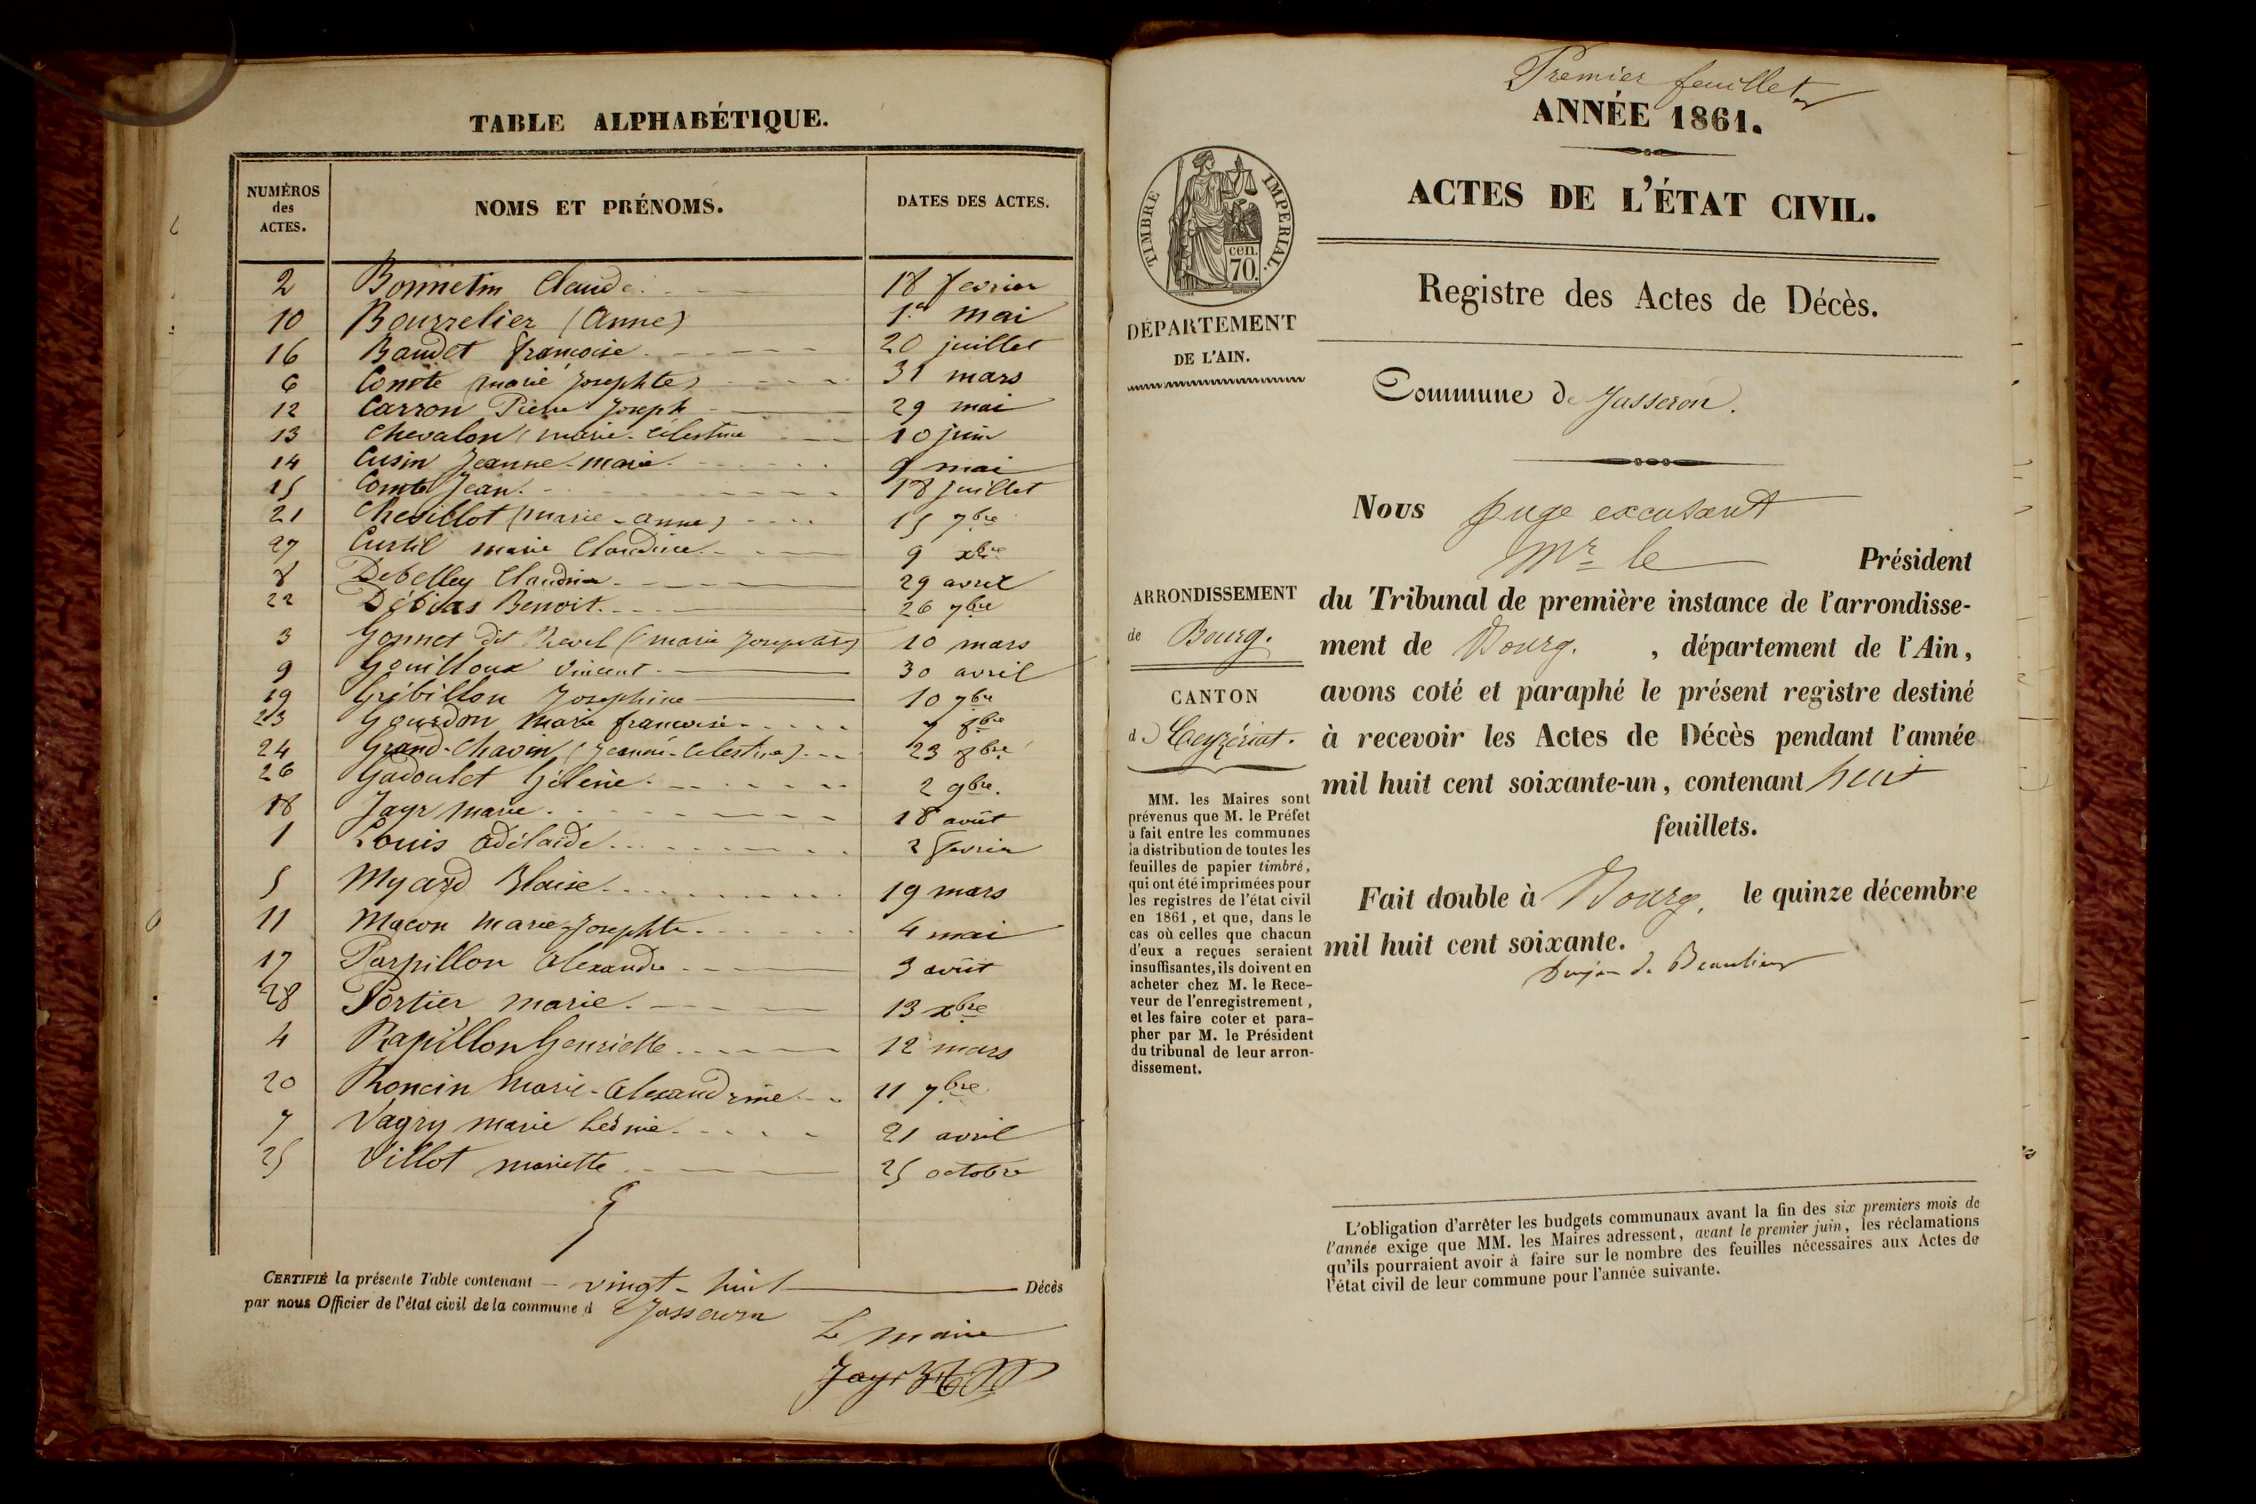 TABLE ALPHABÉTIQUE.
NUMÉROS des ACTES. NOMS ET PRÉNOMS. DATES DES ACTES.
2 Bonnetin Claude 18 fevrier
10 Bourrelier (Anne) 1er mai
16 Baudet françoise 20 juillet
6 Comte (marie Josephte) 31 mars
12 Carron Pierre Joseph 29 mai
13 Chevalon (marie-Célestine 10 juin
14 Cusin Jeanne-marie 9 mai
15 Comte Jean 18 juillet
21 Chevillot (marie-anne) 15 7bre
27 Curtil marie Claudine 9 xbre
8 Debelley Claudine 29 avril
22 Débias Benoit 26 7bre
3 Gonnet dit Revel (marie Josephte) 10 mars
9 Gouilloux Vincent 30 avril
19 Grébillon Josephine 10 7bre
23 Gourdon Marie françoise 7 8bre
24 Grand-Chavin (Jeanne-Célestine) 23 8bre
26 Gadoulet hélène 2 9bre.
18 Jayr marie 18 août
1 Louis adélaïde 2 fevrier
5 Myard Blaise 19 mars
11 Macon marie-Josephte 4 mai
17 Parpillon Alexandre 3 août
28 Portier marie 13 xbre
4 Rapillon henriette 12 mars
20 Roncin Marie-Alexandrine 11 7bre
7 Vagry marie Léonie 21 avril
25 Villot mariette 25 octobre
CERTIFIÉ la présente Table contenant vingt-huit Décès
par nous Officier de l'état civil de la commune d e Jasseron
Le maire
Jayr
Premier feuillet
ANNÉE 1861.
ACTES DE L'ÉTAT CIVIL.
TIMBRE IMPÉRIAL.
cen.
70.
Registre des Actes de Décès.
DÉPARTEMENT
DE L'AIN.
Commune de Jasseron.
Nous juge excusant
Mr le Président
du Tribunal de première instance de l'arrondisse-
ment de Bourg. , département de l'Ain,
avons coté et paraphé le présent registre destiné
à recevoir les Actes de Décès pendant l'année
mil huit cent soixante-un, contenant huit
feuillets.
Fait double à Bourg, le quinze décembre
mil huit cent soixante.
de Beaulieu
ARRONDISSEMENT
de Bourg.
CANTON
de Ceyzériat.
MM. les Maires sont
prévenus que M. le Préfet
a fait entre les communes
la distribution de toutes les
feuilles de papier timbré,
qui ont été imprimées pour
les registres de l'état civil
en 1861, et que, dans le
cas où celles que chacun
d'eux a reçues seraient
insuffisantes, ils doivent en
acheter chez M. le Rece-
veur de l'enregistrement,
et les faire coter et para-
pher par M. le Président
du tribunal de leur arron-
dissement.
L'obligation d'arrêter les budgets communaux avant la fin des six premiers mois de
l'année exige que MM. les Maires adressent, avant le premier juin, les réclamations
qu'ils pourraient avoir à faire sur le nombre des feuilles nécessaires aux Actes de
l'état civil de leur commune pour l'année suivante.